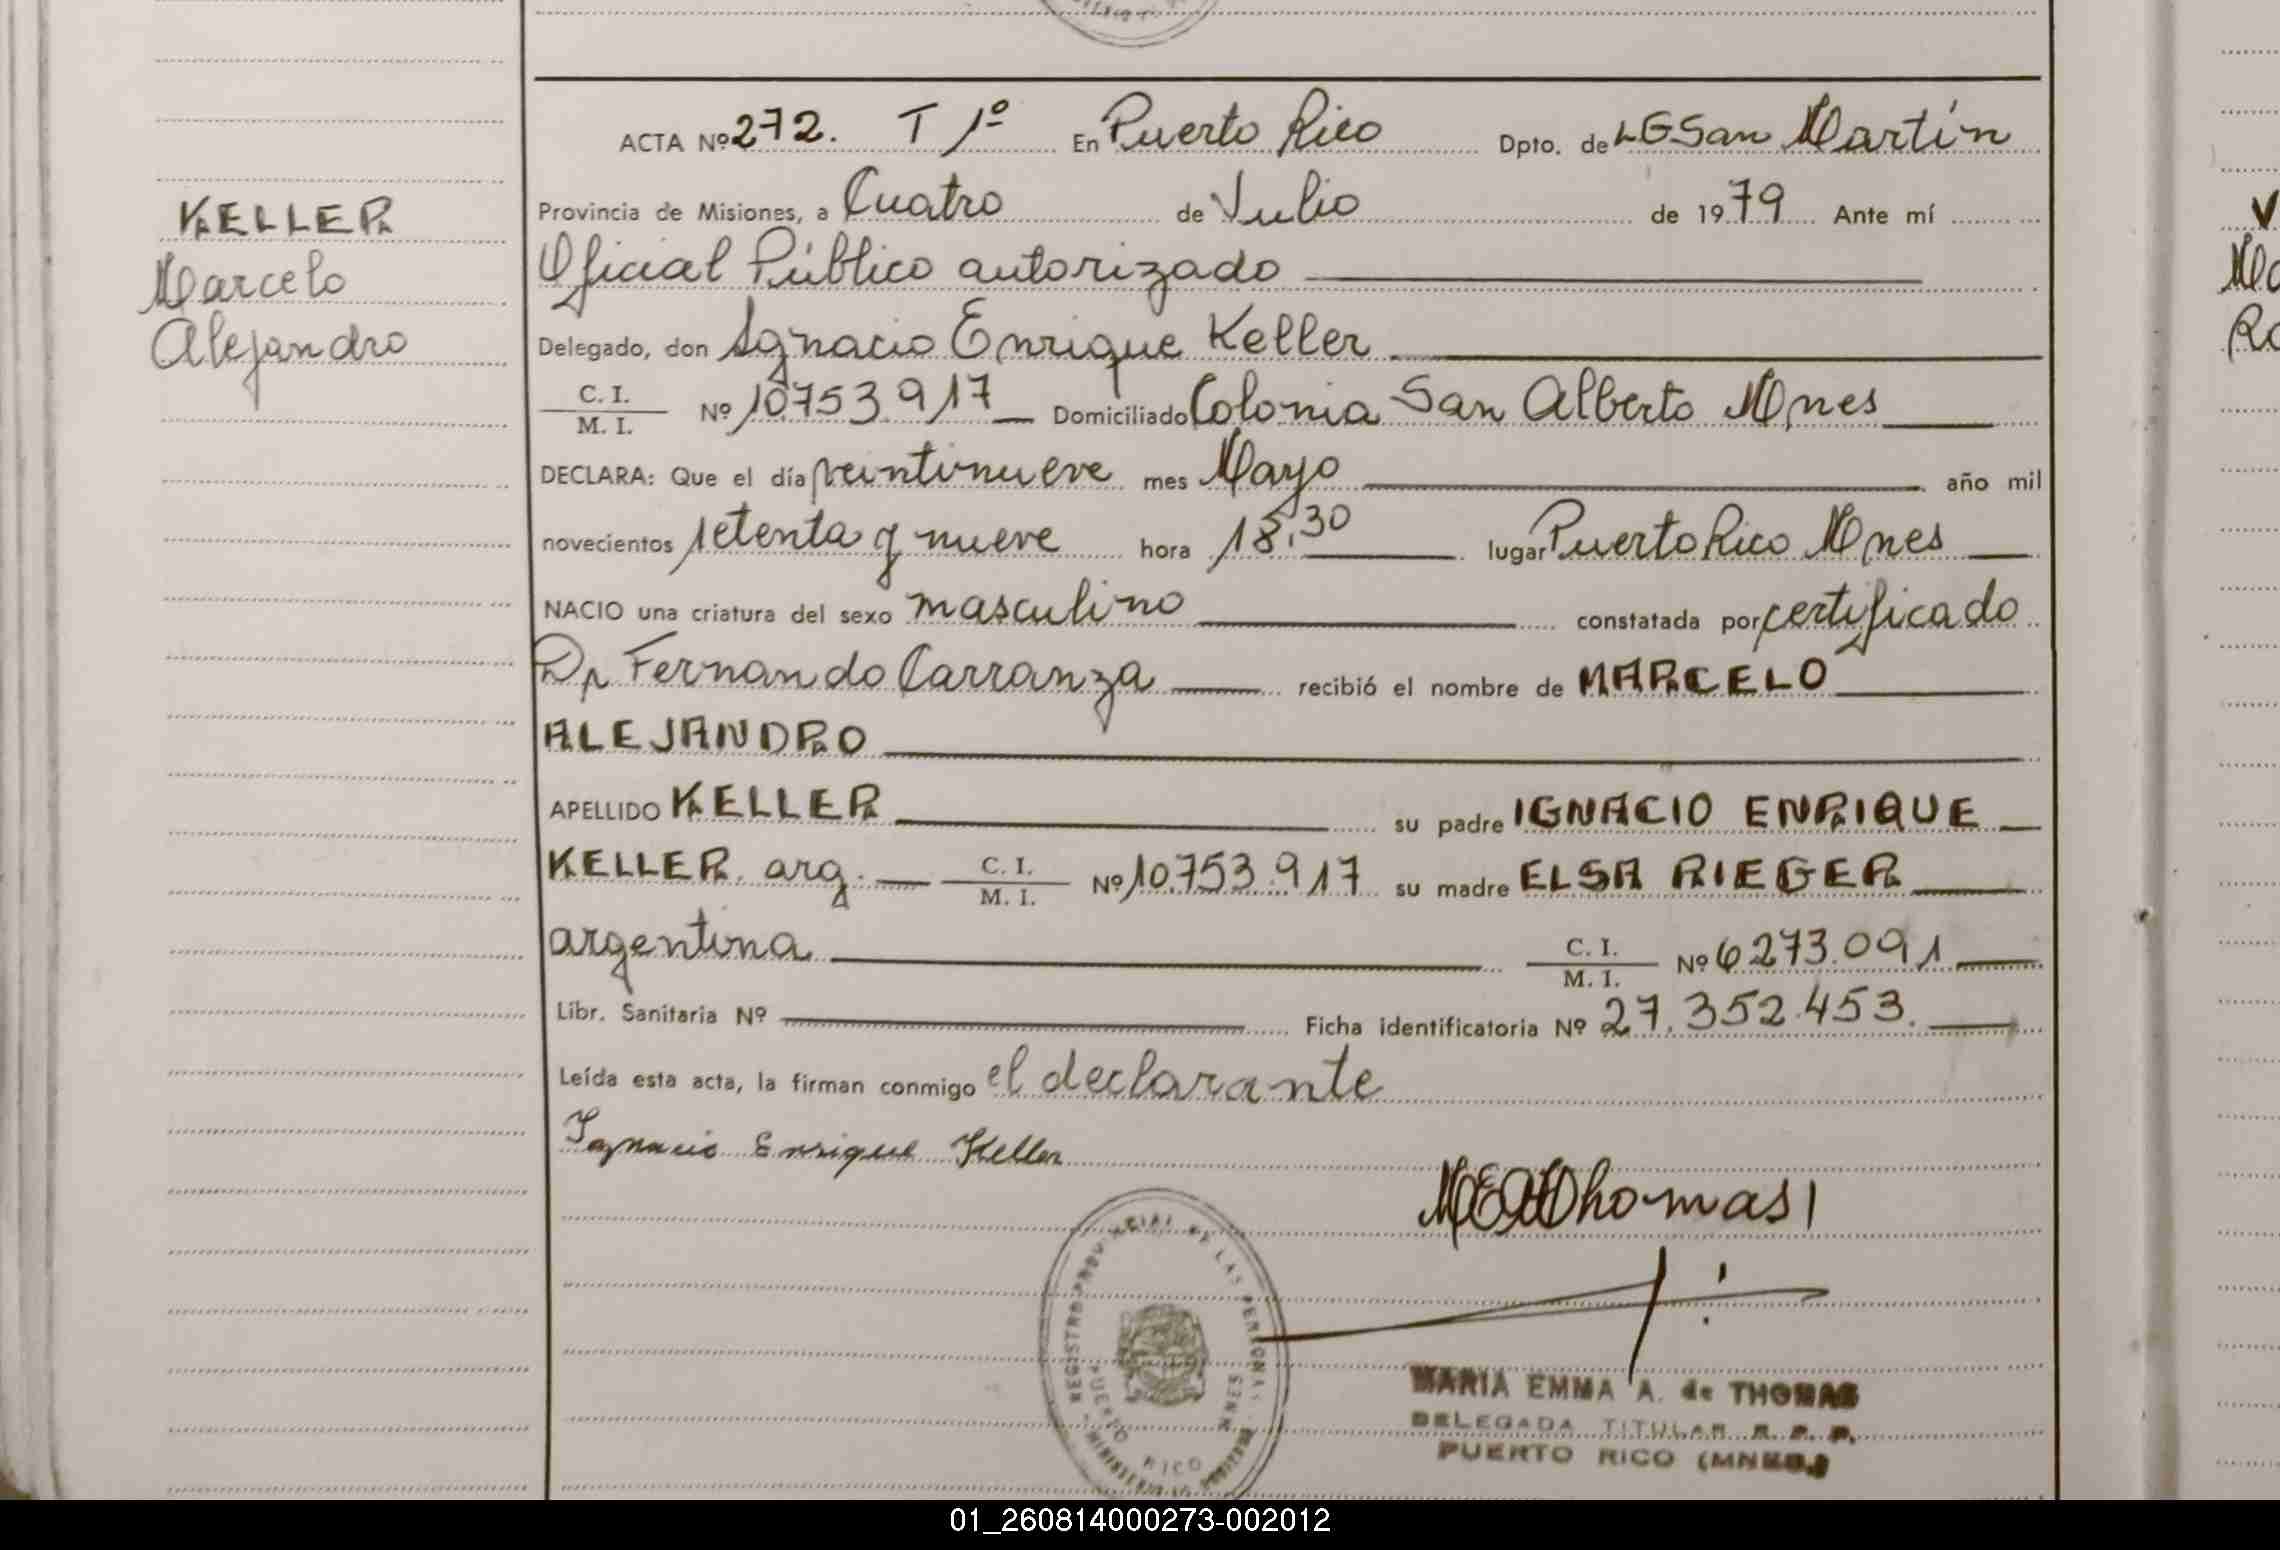 KELLER
Marcelo
Alejandro
ACTA Nº 272. T 1º En Puerto Rico Dpto. de LG San Martín
Provincia de Misiones, a Cuatro de Julio de 1979 Ante mí
Oficial Público autorizado
Delegado, don Ignacio Enrique Keller
C. I. / M. I. Nº 10.753.917 Domiciliado Colonia San Alberto Mnes
DECLARA: Que el día veintinueve mes Mayo año mil
novecientos setenta y nueve hora 18,30 lugar Puerto Rico Mnes
NACIO una criatura del sexo masculino constatada por certificado
Dr Fernando Carranza recibió el nombre de MARCELO
ALEJANDRO
APELLIDO KELLER su padre IGNACIO ENRIQUE
KELLER, arg. C. I. / M. I. Nº 10.753.917 su madre ELSA RIEGER
argentina C. I. / M. I. Nº 6273.091
Libr. Sanitaria Nº Ficha identificatoria Nº 27.352.453.
Leída esta acta, la firman conmigo el declarante
Ignacio Enrique Keller
MEAThomas
REGISTRO PROVINCIAL DE LAS PERSONAS
PUERTO RICO MNES
MARIA EMMA A. de THOMAS
DELEGADA TITULAR R. P. P.
PUERTO RICO (MNES.)
01_260814000273-002012